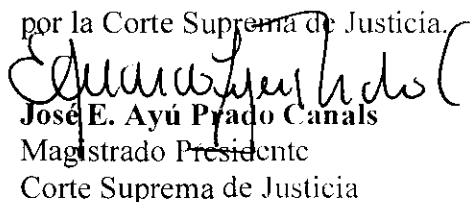 por la Corte Suprema de Justicia.
José E. Ayú Prado Canals
Magistrado Presidente
Corte Suprema de Justicia